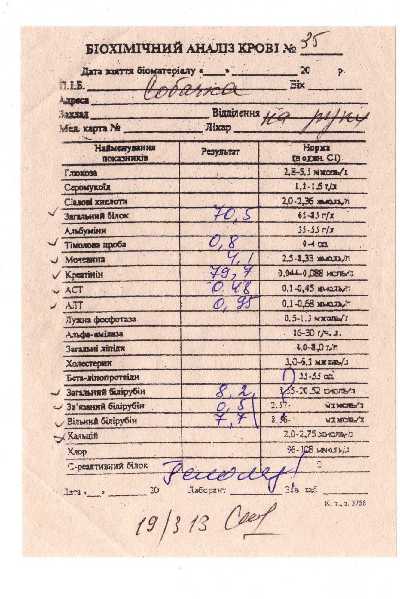 БІОХІМІЧНИЙ АНАЛІЗ КРОВІ № 35
Дата взяття біоматеріалу «__» 20 р.
П.І.Б. Собачка Вік
Адреса
Заклад Відділення на руки
Мед. карта № Лікар
Найменування показників Результат Норма (в один. СІ)
Глюкоза 2,8-5,5 ммоль/л
Серомукоїд
Сіалові кислоти 2,0-2,36 ммоль/л
Загальний білок 70,5 65-85 г/л
Альбуміни 35-55 г/л
Тімолова проба 0,8 0-4 од
Мочевина 4,1 2,5-8,33 ммоль/л
Креатінін 79,7 0,044-0,088 ммоль/л
АСТ 0,48 0,1-0,45 ммоль/л
АЛТ 0,95 0,1-0,68 ммоль/л
Лужна фосфотаза 0,5-1,3 ммоль/л
Альфа-амілаза 16-30 г/ч. л.
Загальні ліпіди 4,0-8,0 г/л
Холестерин ммоль/л
Бета-ліпопротеїди 35-55 од
Загальний білірубін 8,2
Зв'язаний білірубін 0,5
Вільний білірубін 7,7
Кальцій 2,0-2,75 ммоль/л
Хлор 96-108 ммоль/л
С-реактивний білок
Дата «__» 20 Лаборант Зав. лаб.
19/3 13